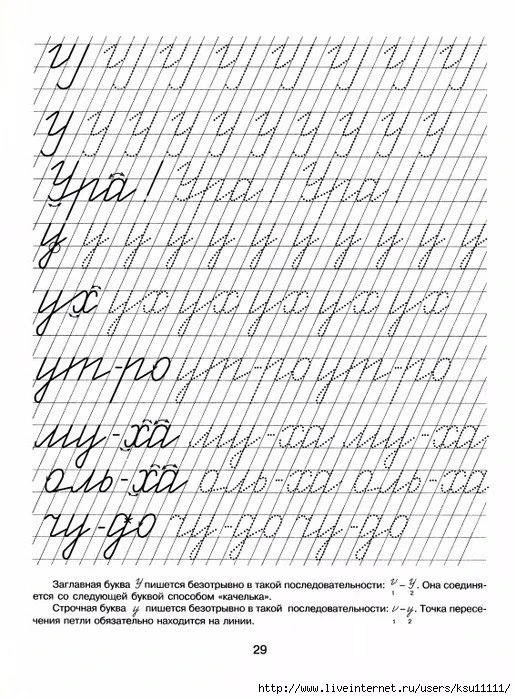 У У У У У У У У
У У У У У У У У У
Ура! Ура! Ура!
у у у у у у у у у у у
ух ух ух ух ух ух
ут-ро ут-ро ут-ро
му-ха му-ха му-ха
оль-ха оль-ха оль-ха
чу-до чу-до чу-до
Заглавная буква У пишется безотрывно в такой последовательности: и – У. Она соединя-
1 2
ется со следующей буквой способом «качелька».
Строчная буква у пишется безотрывно в такой последовательности: и – у. Точка пересе-
1 2
чения петли обязательно находится на линии.
29
http://www.liveinternet.ru/users/ksu11111/